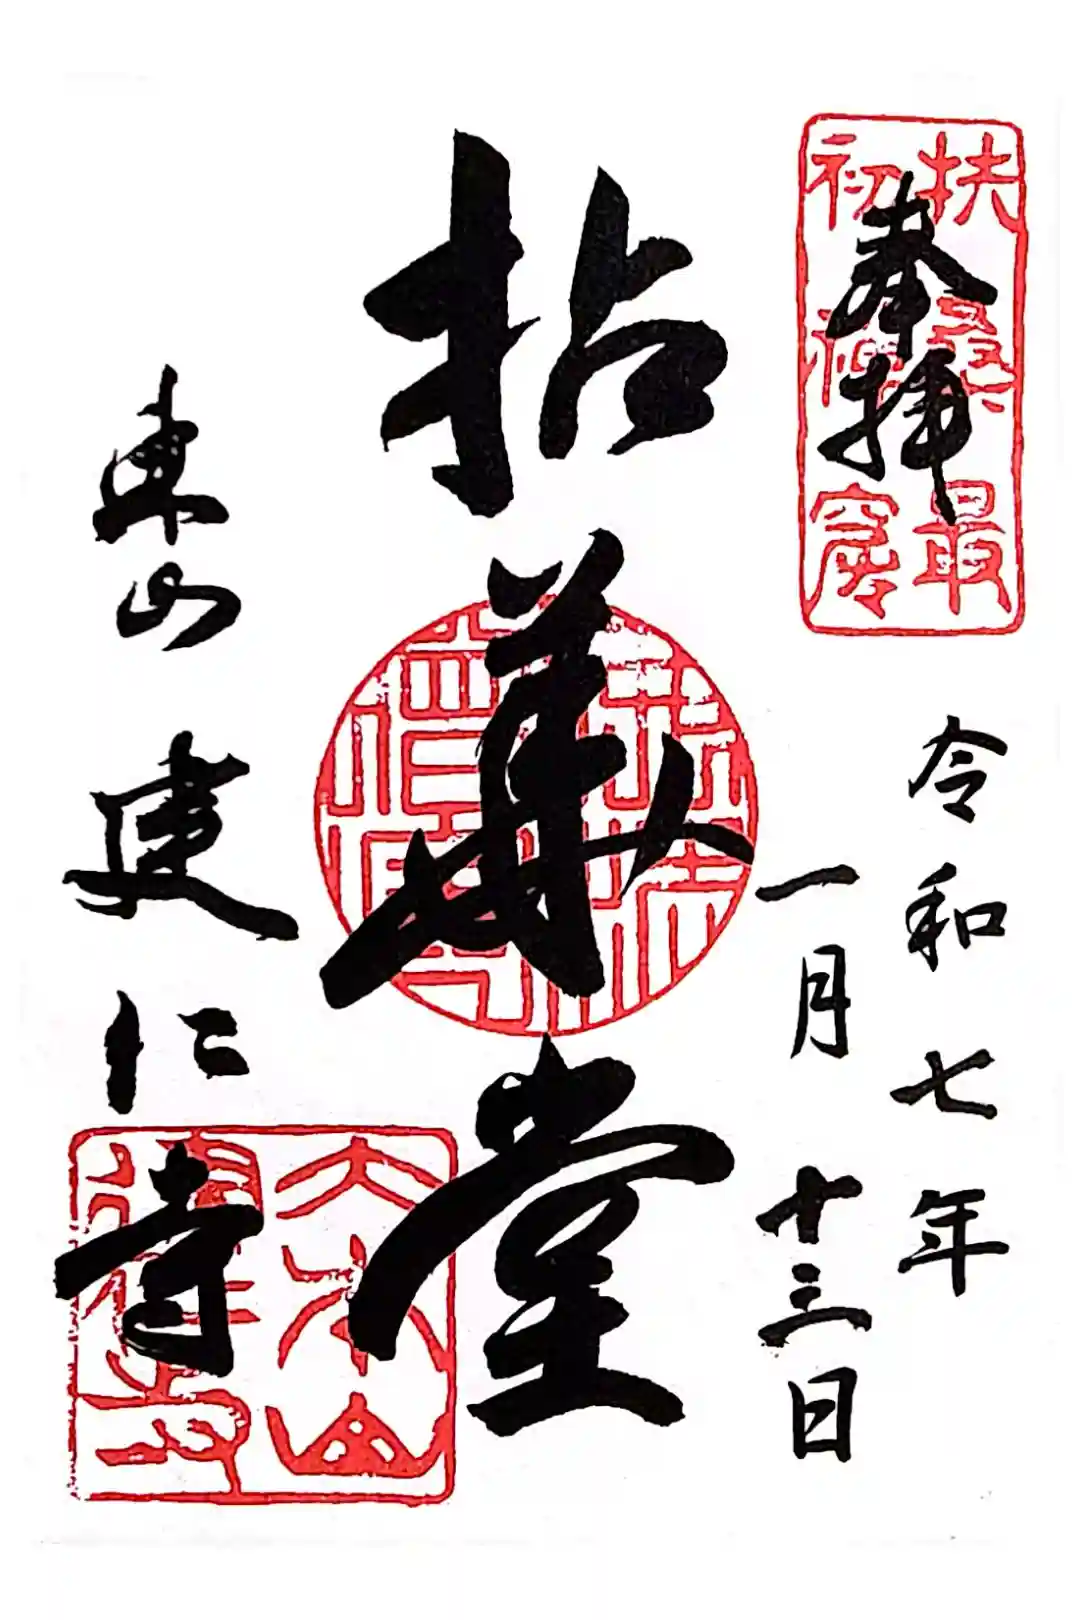 扶桑最
初禪窟
奉拝
令和七年
一月十三日
拈華堂
佛法
僧寶
東山 建仁寺
大本山
建仁寺